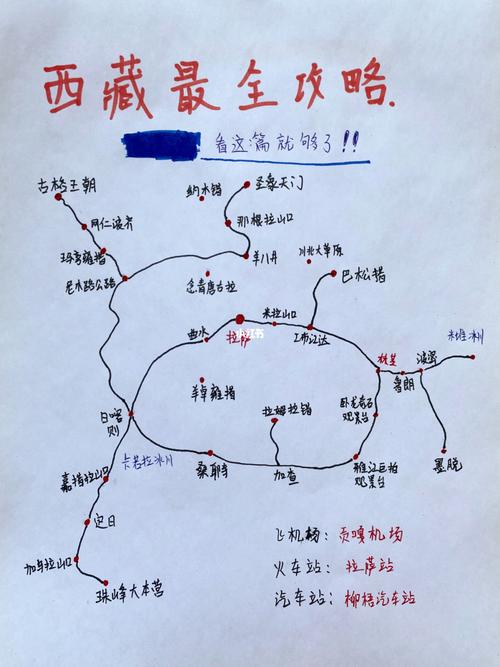 西藏最全攻略.
看这篇就够了!!
古格王朝
纳木错
圣象天门
冈仁波齐
那根拉山口
玛旁雍措
羊八井
川北大草原
尼木路公路
念青唐古拉
巴松措
曲水
拉萨
小红书
米拉山口
工布江达
米堆冰川
林芝
鲁朗
波密
羊卓雍措
日喀则
拉姆拉错
卧龙奇石观景台
卡若拉冰川
桑耶寺
加查
雅江巨柏观景台
墨脱
嘉措拉山口
定日
加乌拉山口
珠峰大本营
飞机场：贡嘎机场
火车站：拉萨站
汽车站：柳梧汽车站